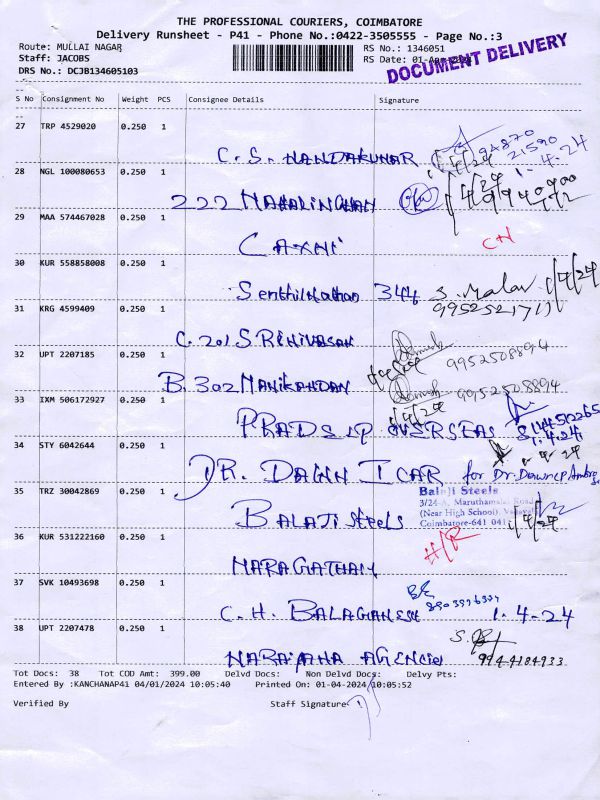 THE PROFESSIONAL COURIERS, COIMBATORE
Delivery Runsheet - P41 - Phone No.:0422-3505555 - Page No.:3
Route: MULLAI NAGAR RS No.: 1346051
Staff: JACOBS RS Date: 01-
DRS No.: DCJB134605103
DOCUMENT DELIVERY
S No Consignment No Weight PCS Consignee Details Signature
27 TRP 4529020 0.250 1
C. S. NANDAKUMAR 1/4/24 94870
21590
1.4.24
28 NGL 100080653 0.250 1
222 MAHALINGHAM 1/4/24
29 MAA 574467028 0.250 1
CN
30 KUR 558858008 0.250 1
Senthilnathan 344 S. Malar 1/4/24
9952521711
31 KRG 4599409 0.250 1
C. 201 SRINIVASAN
32 UPT 2207185 0.250 1 9952508894
B. 302 MANIKANDAN 9952508894
33 IXM 506172927 0.250 1 1/4/24
PRADEEP OVERSEAS
1.4.24
34 STY 6042644 0.250 1
DR. for Dr.
35 TRZ 30042869 0.250 1 Balaji Steels
3/24-A, Maruthamalai Road
(Near High School),
BALAJI Steels Coimbatore-641 041 1/4/24
36 KUR 531222160 0.250 1 H/R
MARAGATHAM
37 SVK 10493698 0.250 1
C. H. BALAGANESH 1.4-24
38 UPT 2207478 0.250 1
NARAYANA AGENCIES 9944184933
Tot Docs: 38 Tot COD Amt: 399.00 Delvd Docs: Non Delvd Docs: Delvy Pts:
Entered By :KANCHANAP41 04/01/2024 10:05:40 Printed On: 01-04-2024 10:05:52
Verified By Staff Signature